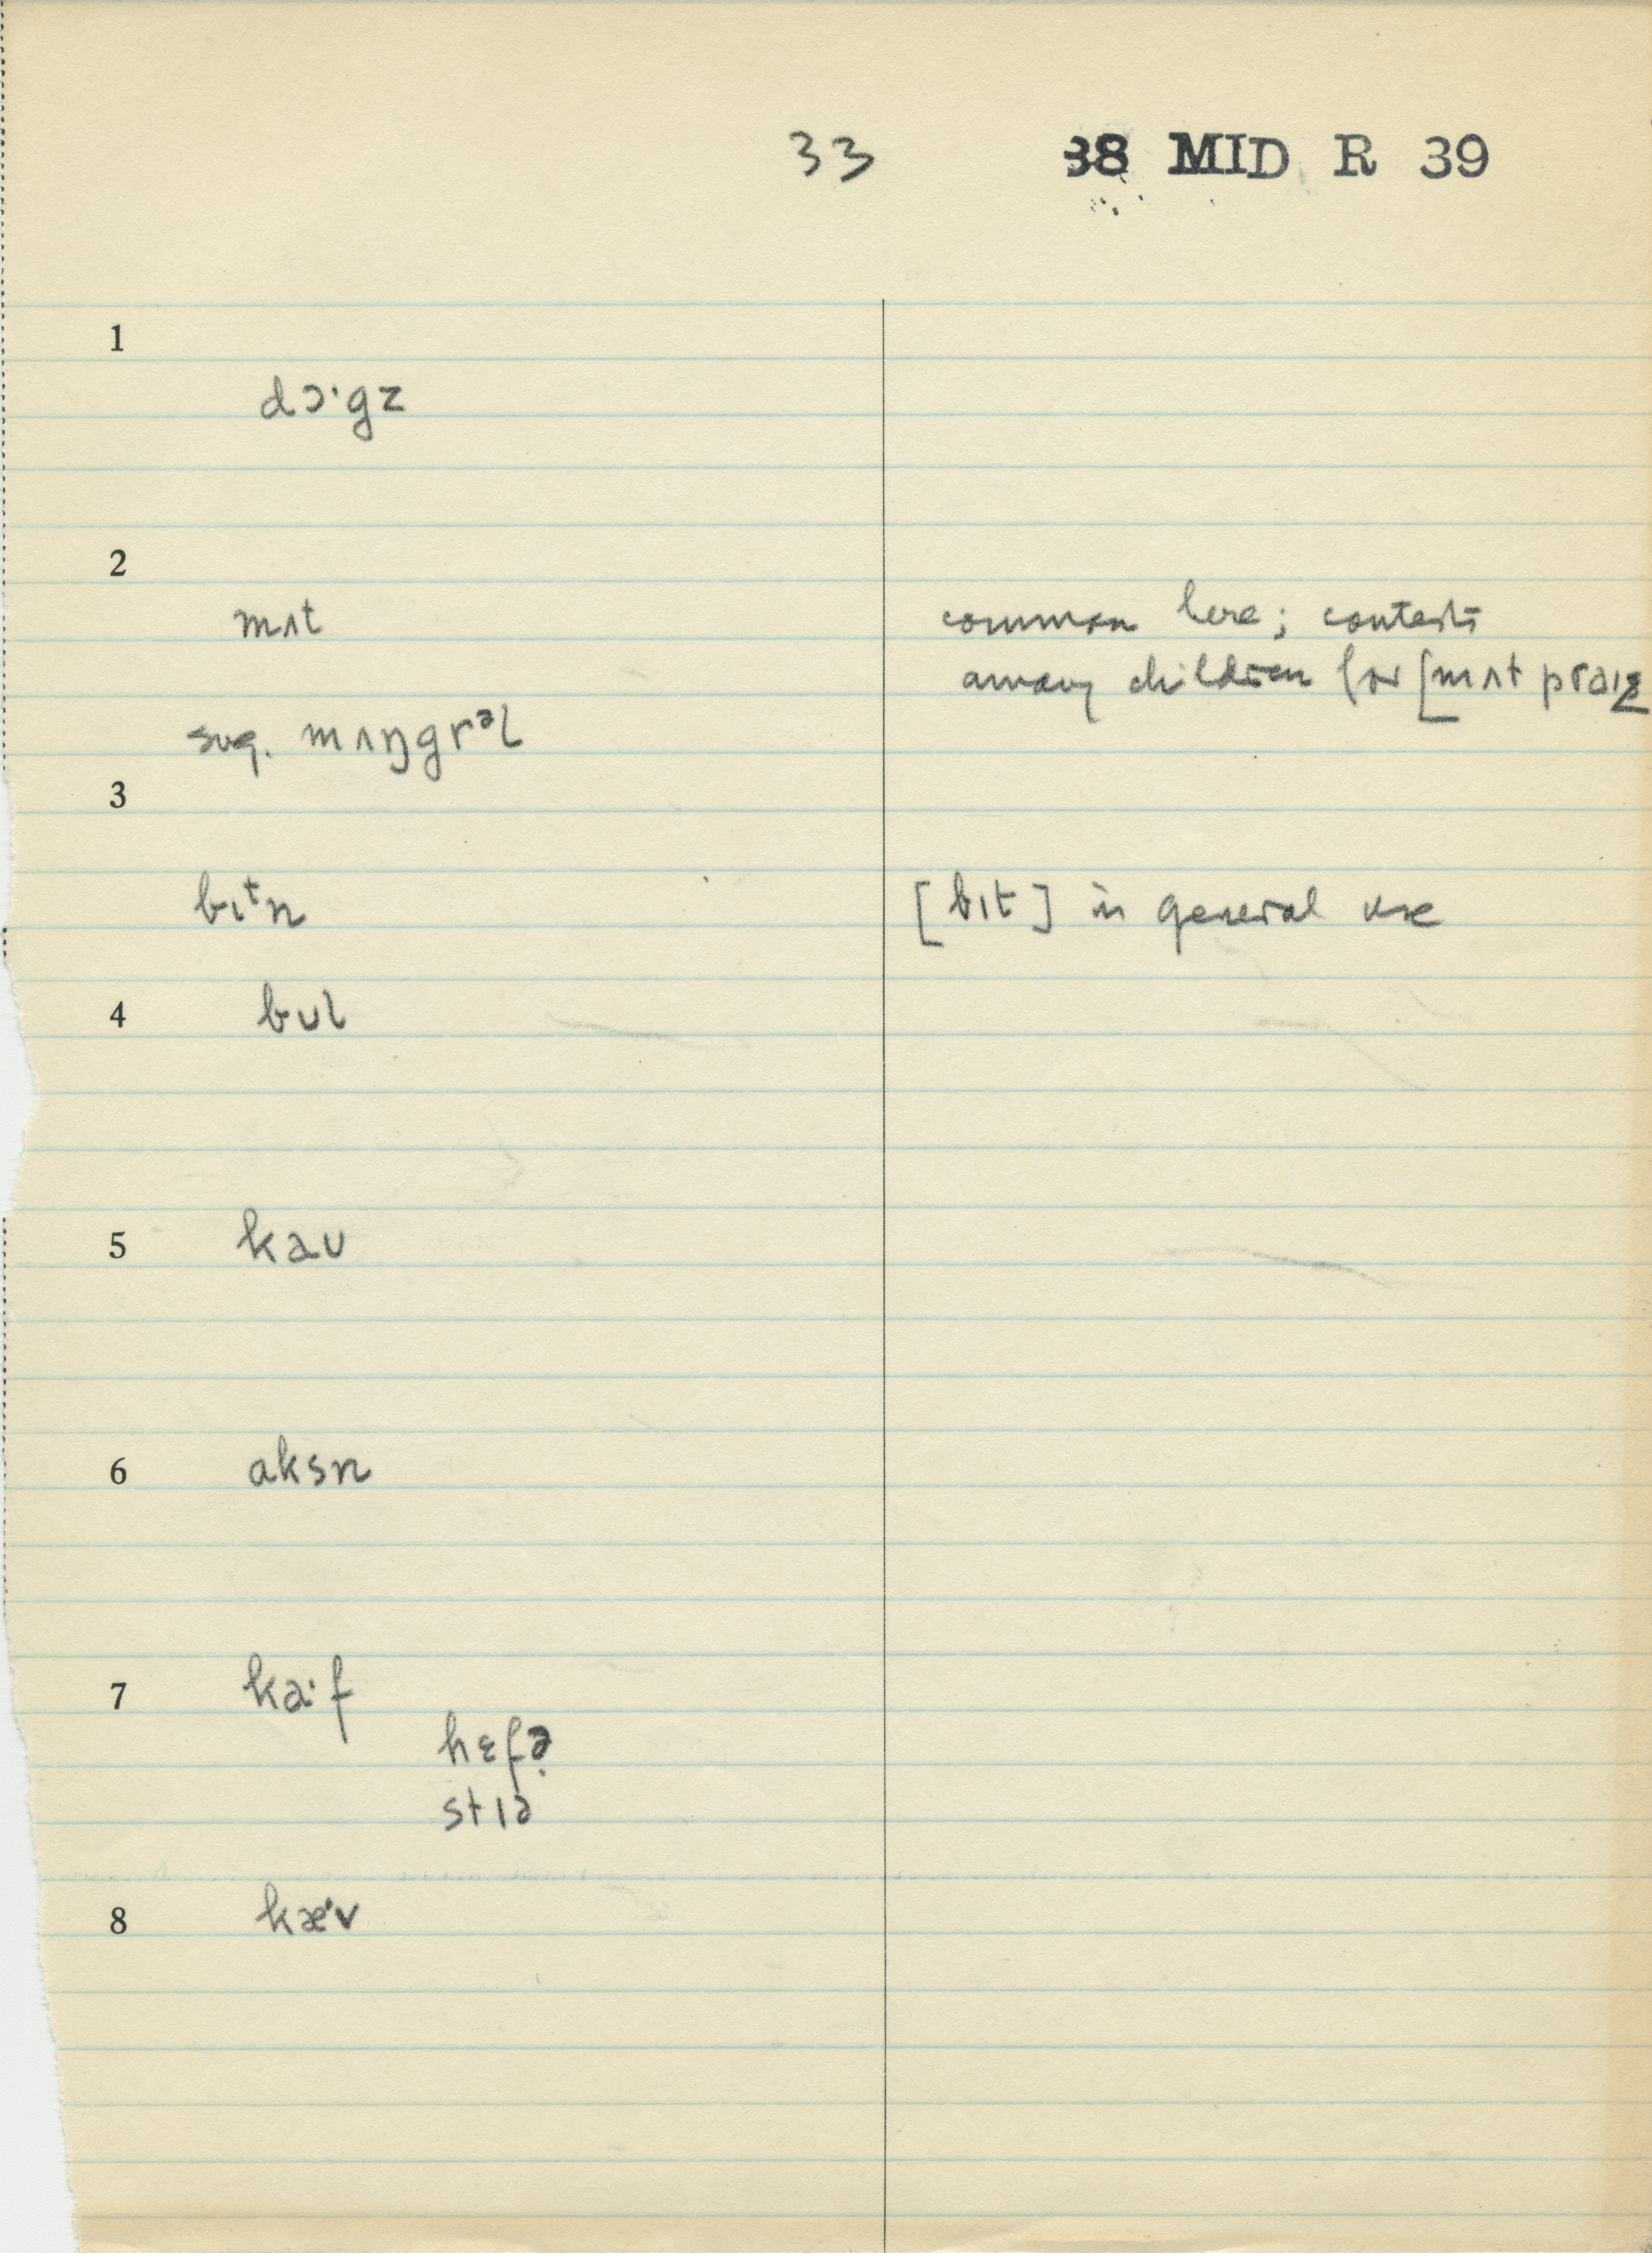 33 38 MID R 39
1
dɔ·gz
2
mʌt common here; contests
among children for [mʌt praiz
sug. mʌŋgrᵊl
3
bɪᵗn [bɪt] in general use
4 bʊl
5 kaʊ
6 aksn
7 ka·f
hɛfə̣
stɪə
8 kæ·v